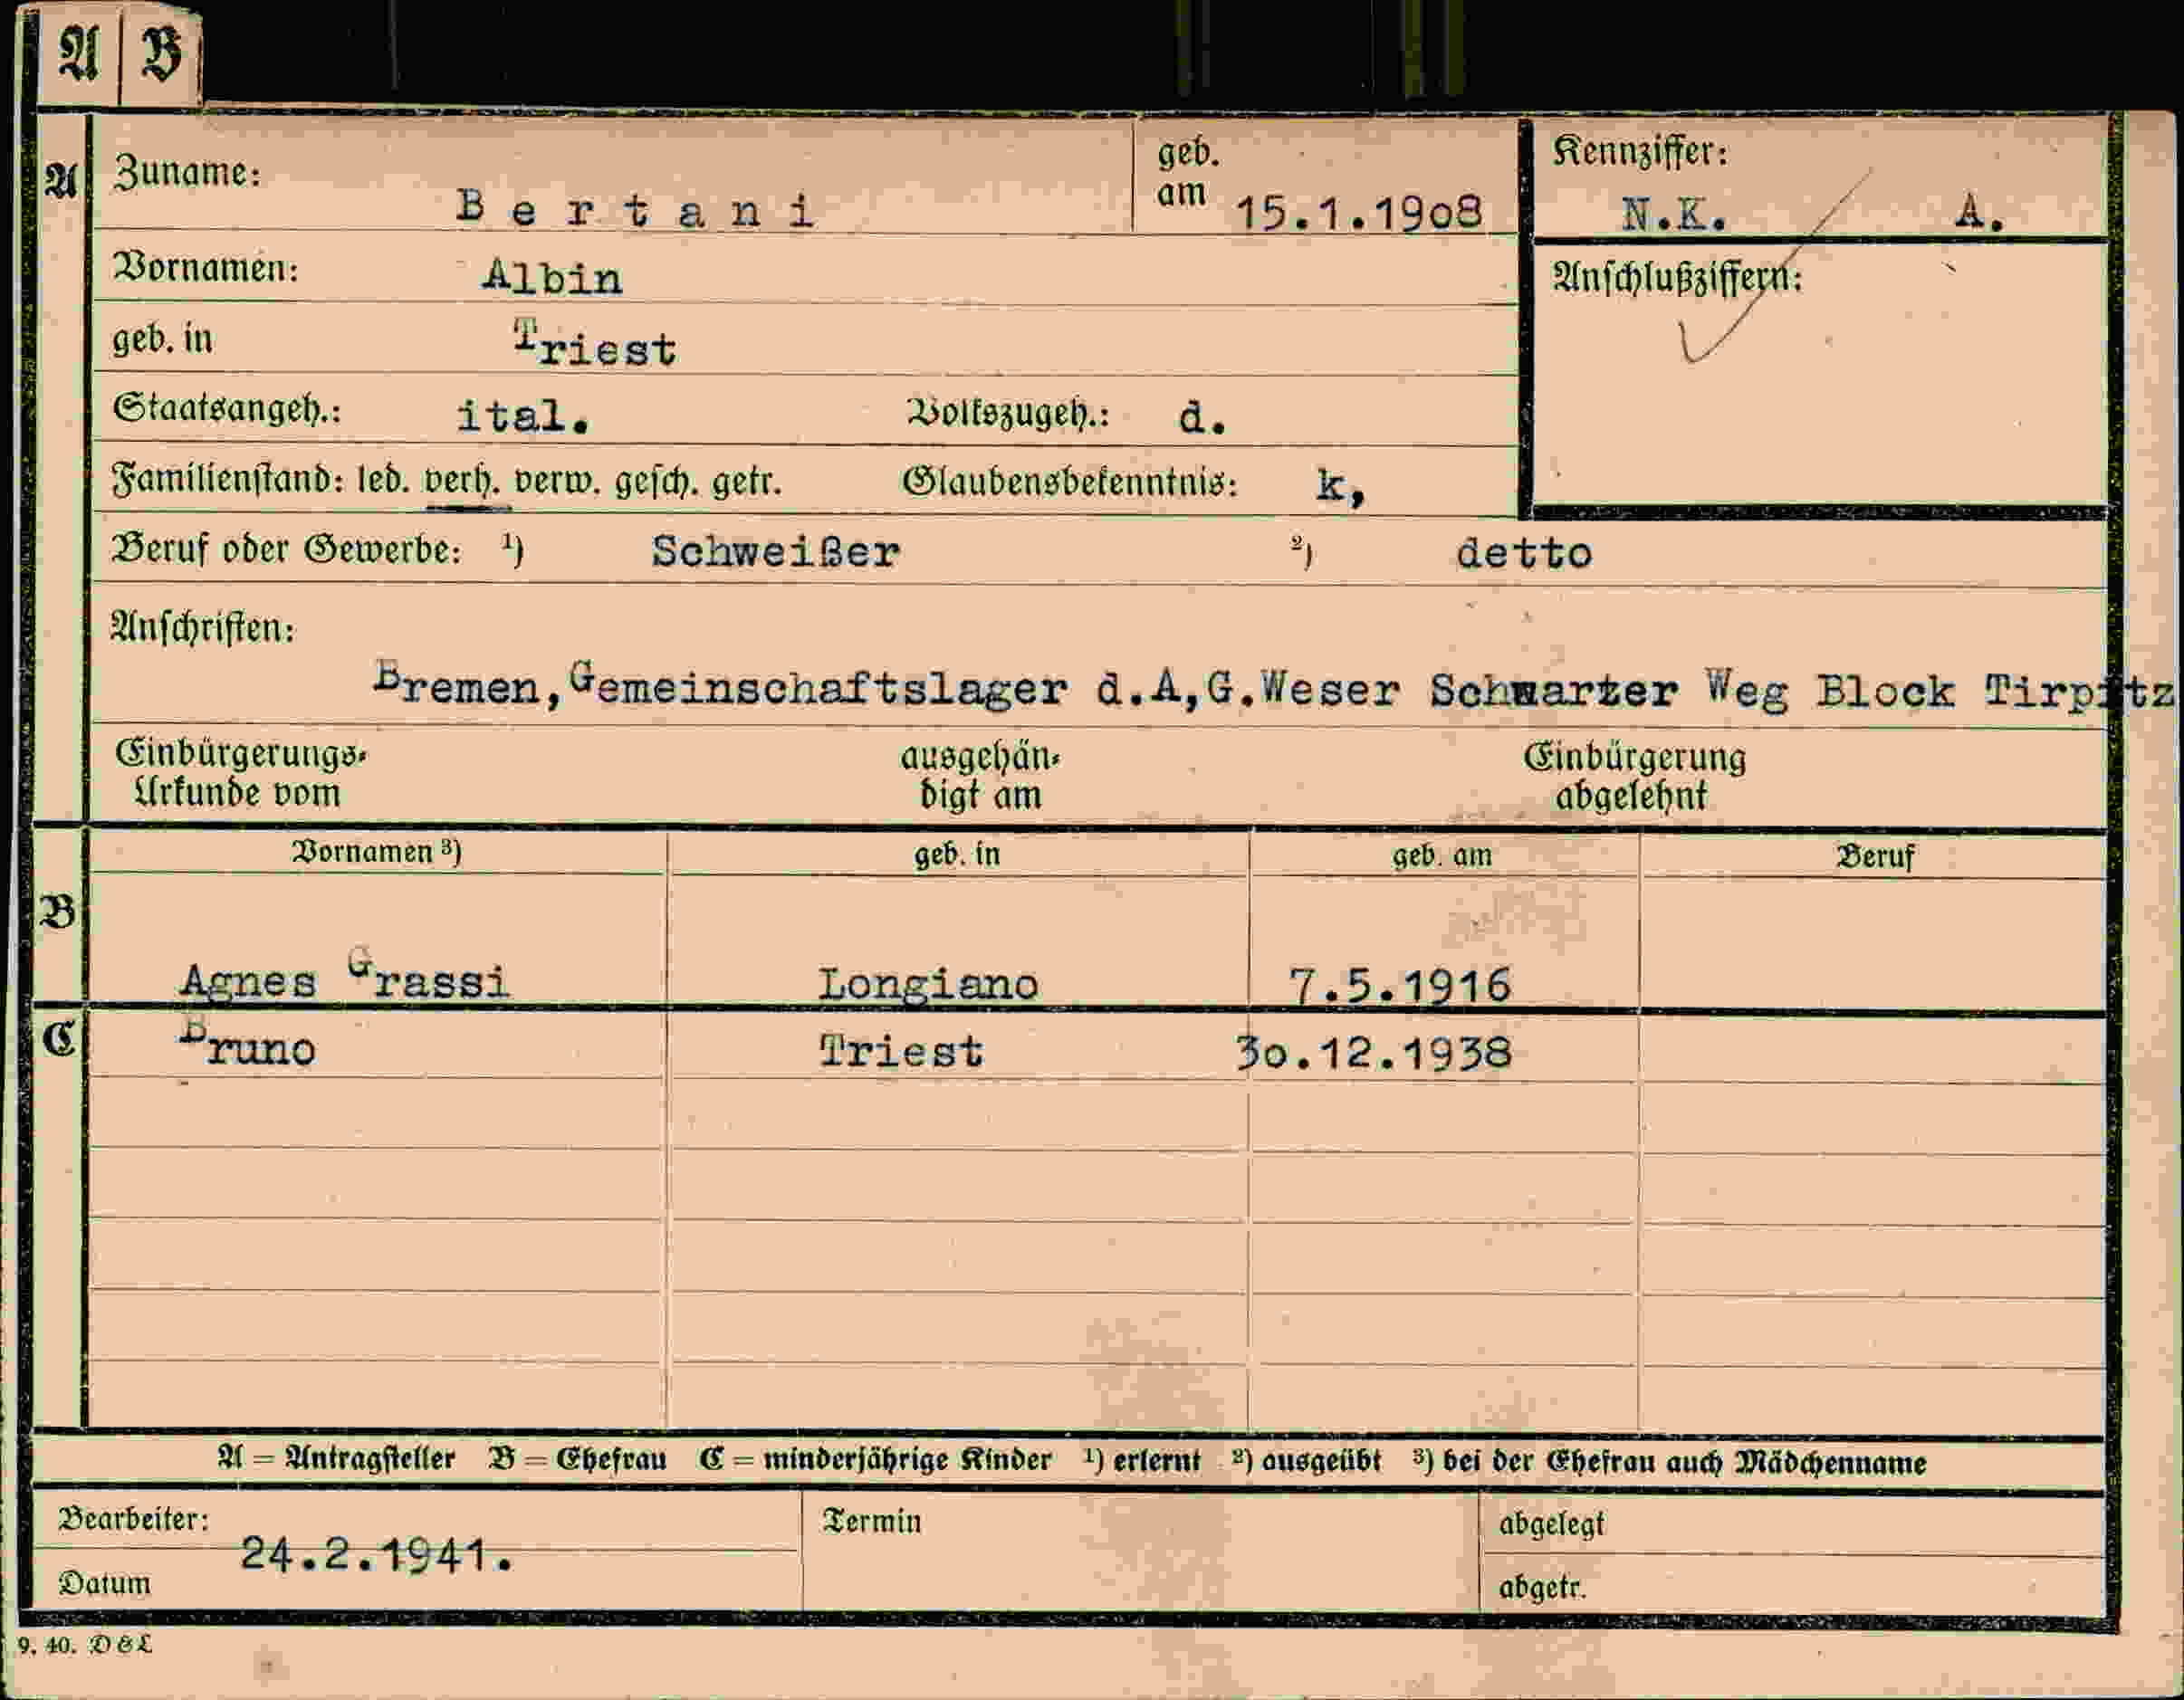 A B
A Zuname: Bertani geb. am 15.1.1908 Kennziffer: N.K. A.
Vornamen: Albin Anschlußziffern:
geb. in Triest
Staatsangeh.: ital. Volkszugeh.: d.
Familienstand: led. verh. verw. gesch. getr. Glaubensbekenntnis: k,
Beruf oder Gewerbe: ¹) Schweißer ²) detto
Anschriften:
Bremen,Gemeinschaftslager d.A,G.Weser Schwarzer Weg Block Tirpitz
Einbürgerungs- ausgehän- Einbürgerung
Urkunde vom digt am abgelehnt
Vornamen ³) geb. in geb. am Beruf
B
Agnes Grassi Longiano 7.5.1916
C Bruno Triest 3o.12.1938
A = Antragsteller B = Ehefrau C = minderjährige Kinder ¹) erlernt ²) ausgeübt ³) bei der Ehefrau auch Mädchenname
Bearbeiter: Termin abgelegt
24.2.1941.
Datum abgetr.
9. 40. D & L